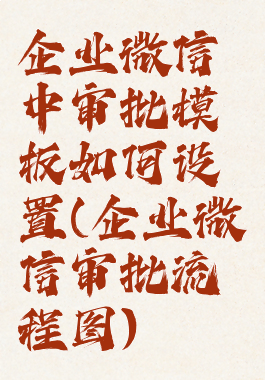 企业微信
中审批模
板如何设
置(企业微
信审批流
程图)